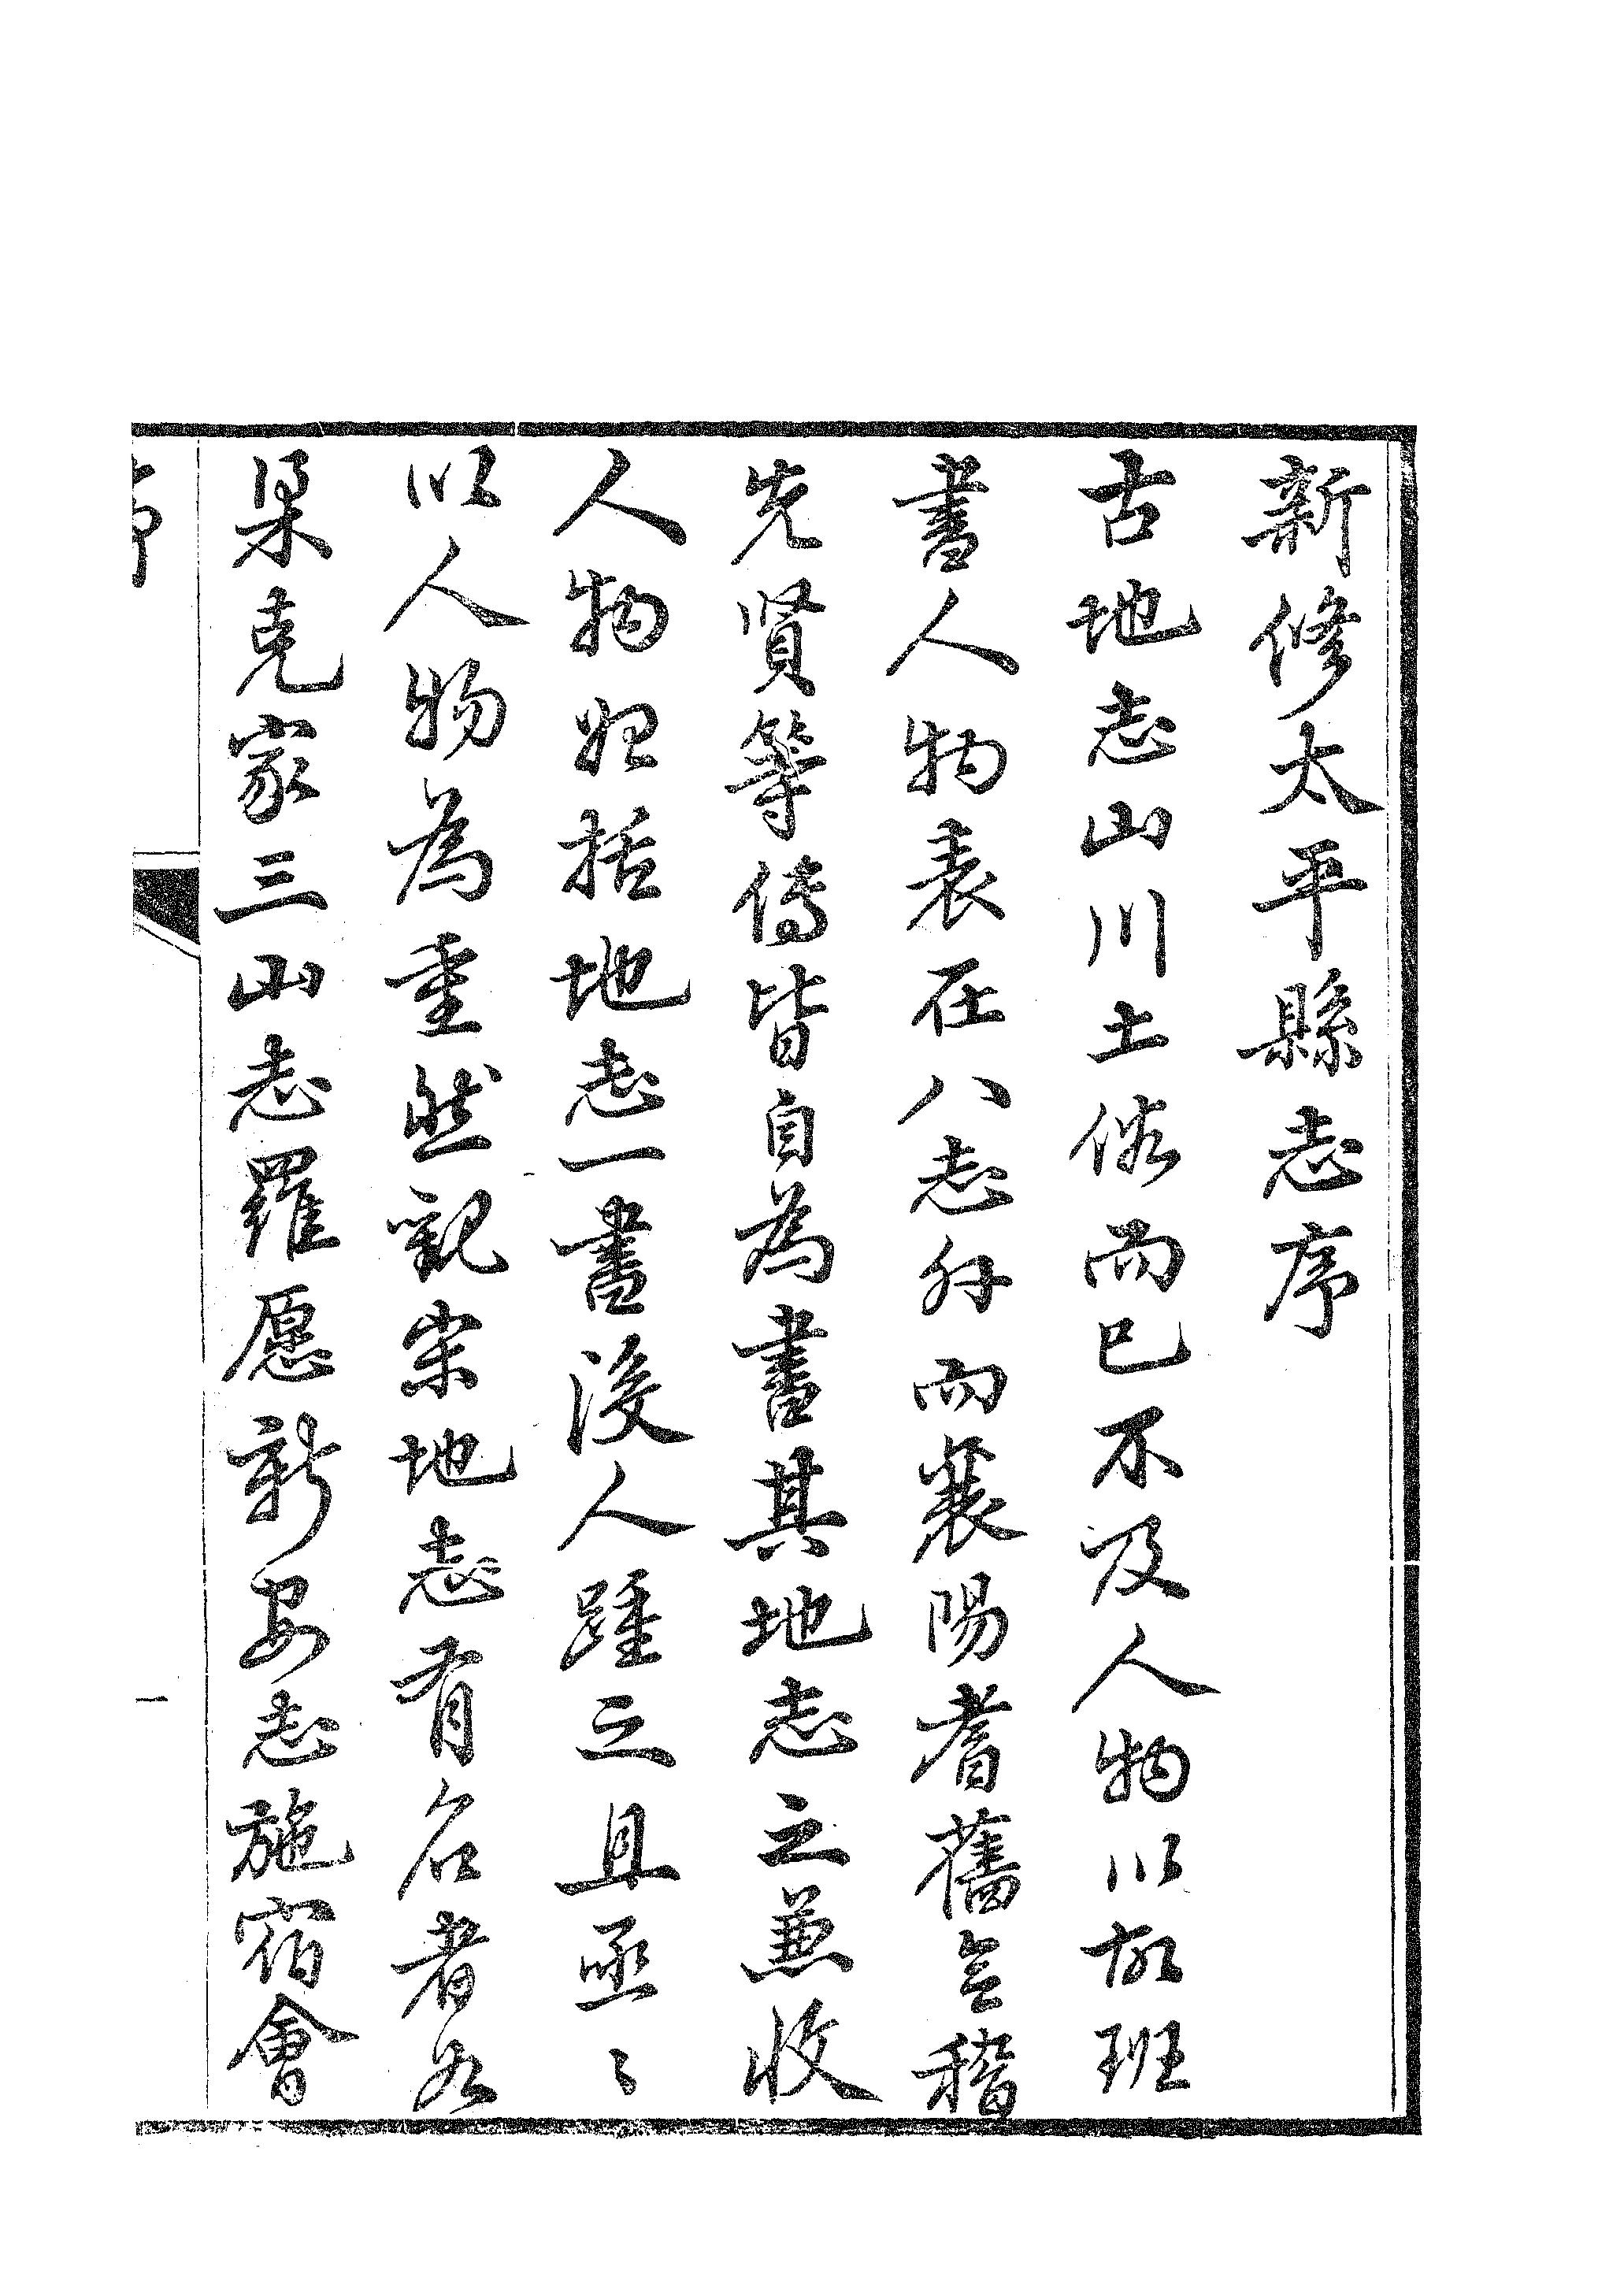 新修太平縣志序
古地志山川土俗而已不及人物以故班
書人物表在八志外而襄陽耆舊會稽
先賢等傳皆自為書其地志之兼收
人物始括地志一書後人踵之且亟〻
以人物為重然觀宋地志有名者如
梁克家三山志羅愿新安志施宿會
序
一